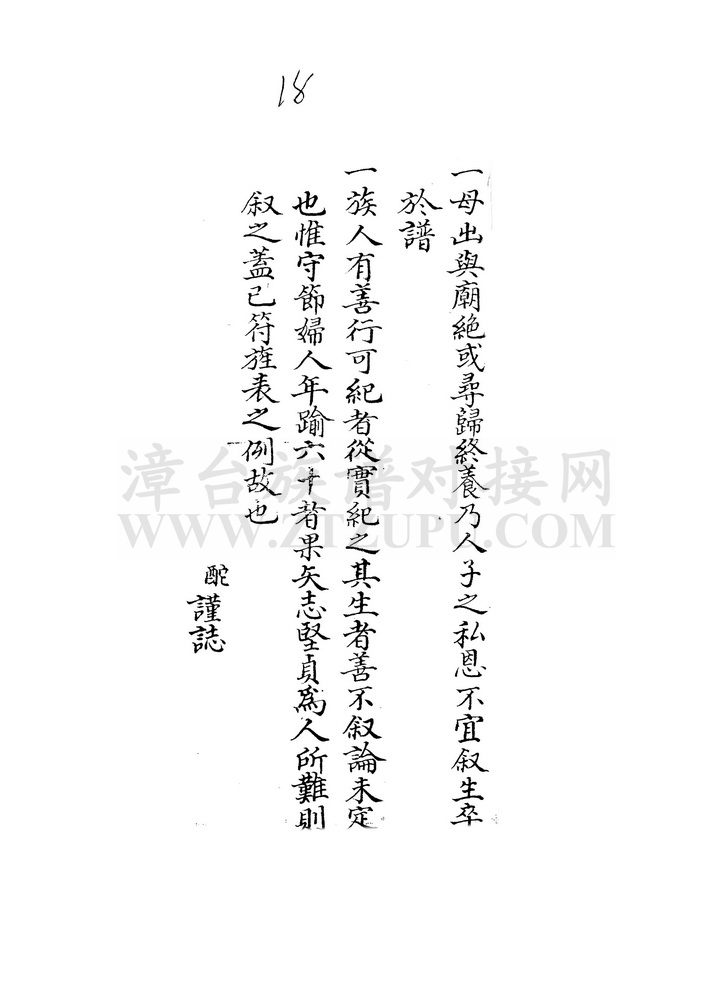 18
一母出與廟絶或尋歸終養乃人子之私恩不宜叙生卒
於譜
一族人有善行可紀者從實紀之其生者善不叙論未定
也惟守節婦人年踰六十者果矢志堅貞爲人所難則
叙之蓋已符旌表之例故也
酡謹誌
漳台族谱对接网
WWW.ZTZUPU.COM